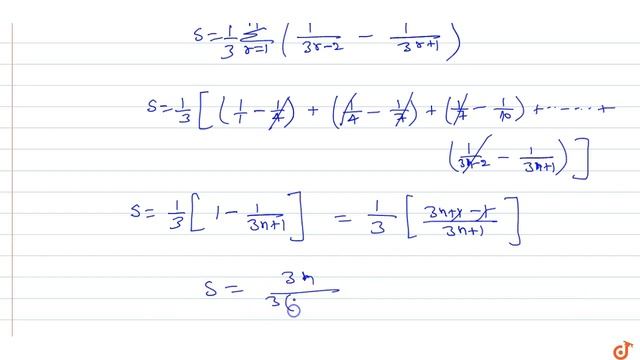 S = 1/3 Σ r=1 ( 1/(3r-2) - 1/(3r+1) )
S = 1/3 [ ( 1/1 - 1/4 ) + ( 1/4 - 1/7 ) + ( 1/7 - 1/10 ) + ------ +
( 1/(3n-2) - 1/(3n+1) ) ]
S = 1/3 [ 1 - 1/(3n+1) ] = 1/3 [ (3n+1-1)/(3n+1) ]
S = 3n / 3(